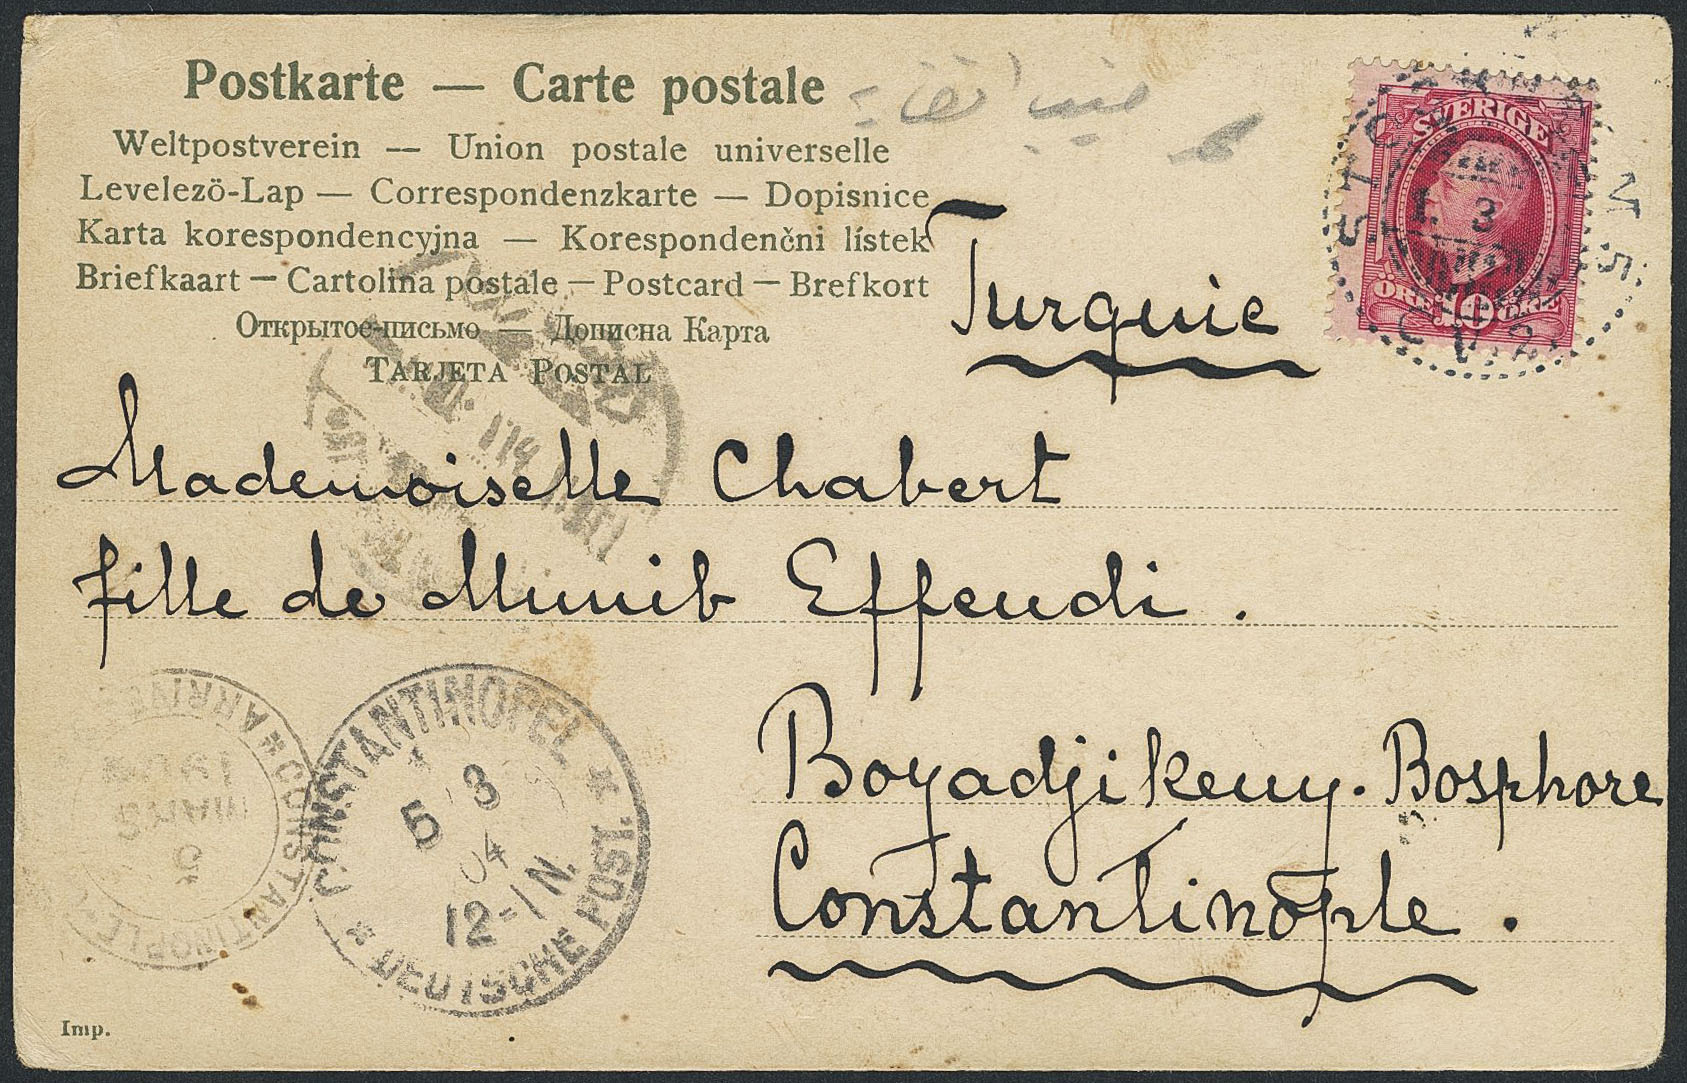 Postkarte — Carte postale
Weltpostverein — Union postale universelle
Levelezö-Lap — Correspondenzkarte — Dopisnice
Karta korespondencyjna — Korespondenčni lístek
Briefkaart — Cartolina postale — Postcard — Brefkort
Открытое-письмо — Дописна Карта
TARJETA POSTAL
SVERIGE
ÖRE 10 ÖRE
Turquie
Mademoiselle Chabert
fille de Munib Effendi.
Boyadjikeuy. Bosphore
Constantinople.
CONSTANTINOPEL
5 3
04
12-1N.
* DEUTSCHE POST. *
ARRIVEE * CONSTANTINOPLE
MARS
Imp.